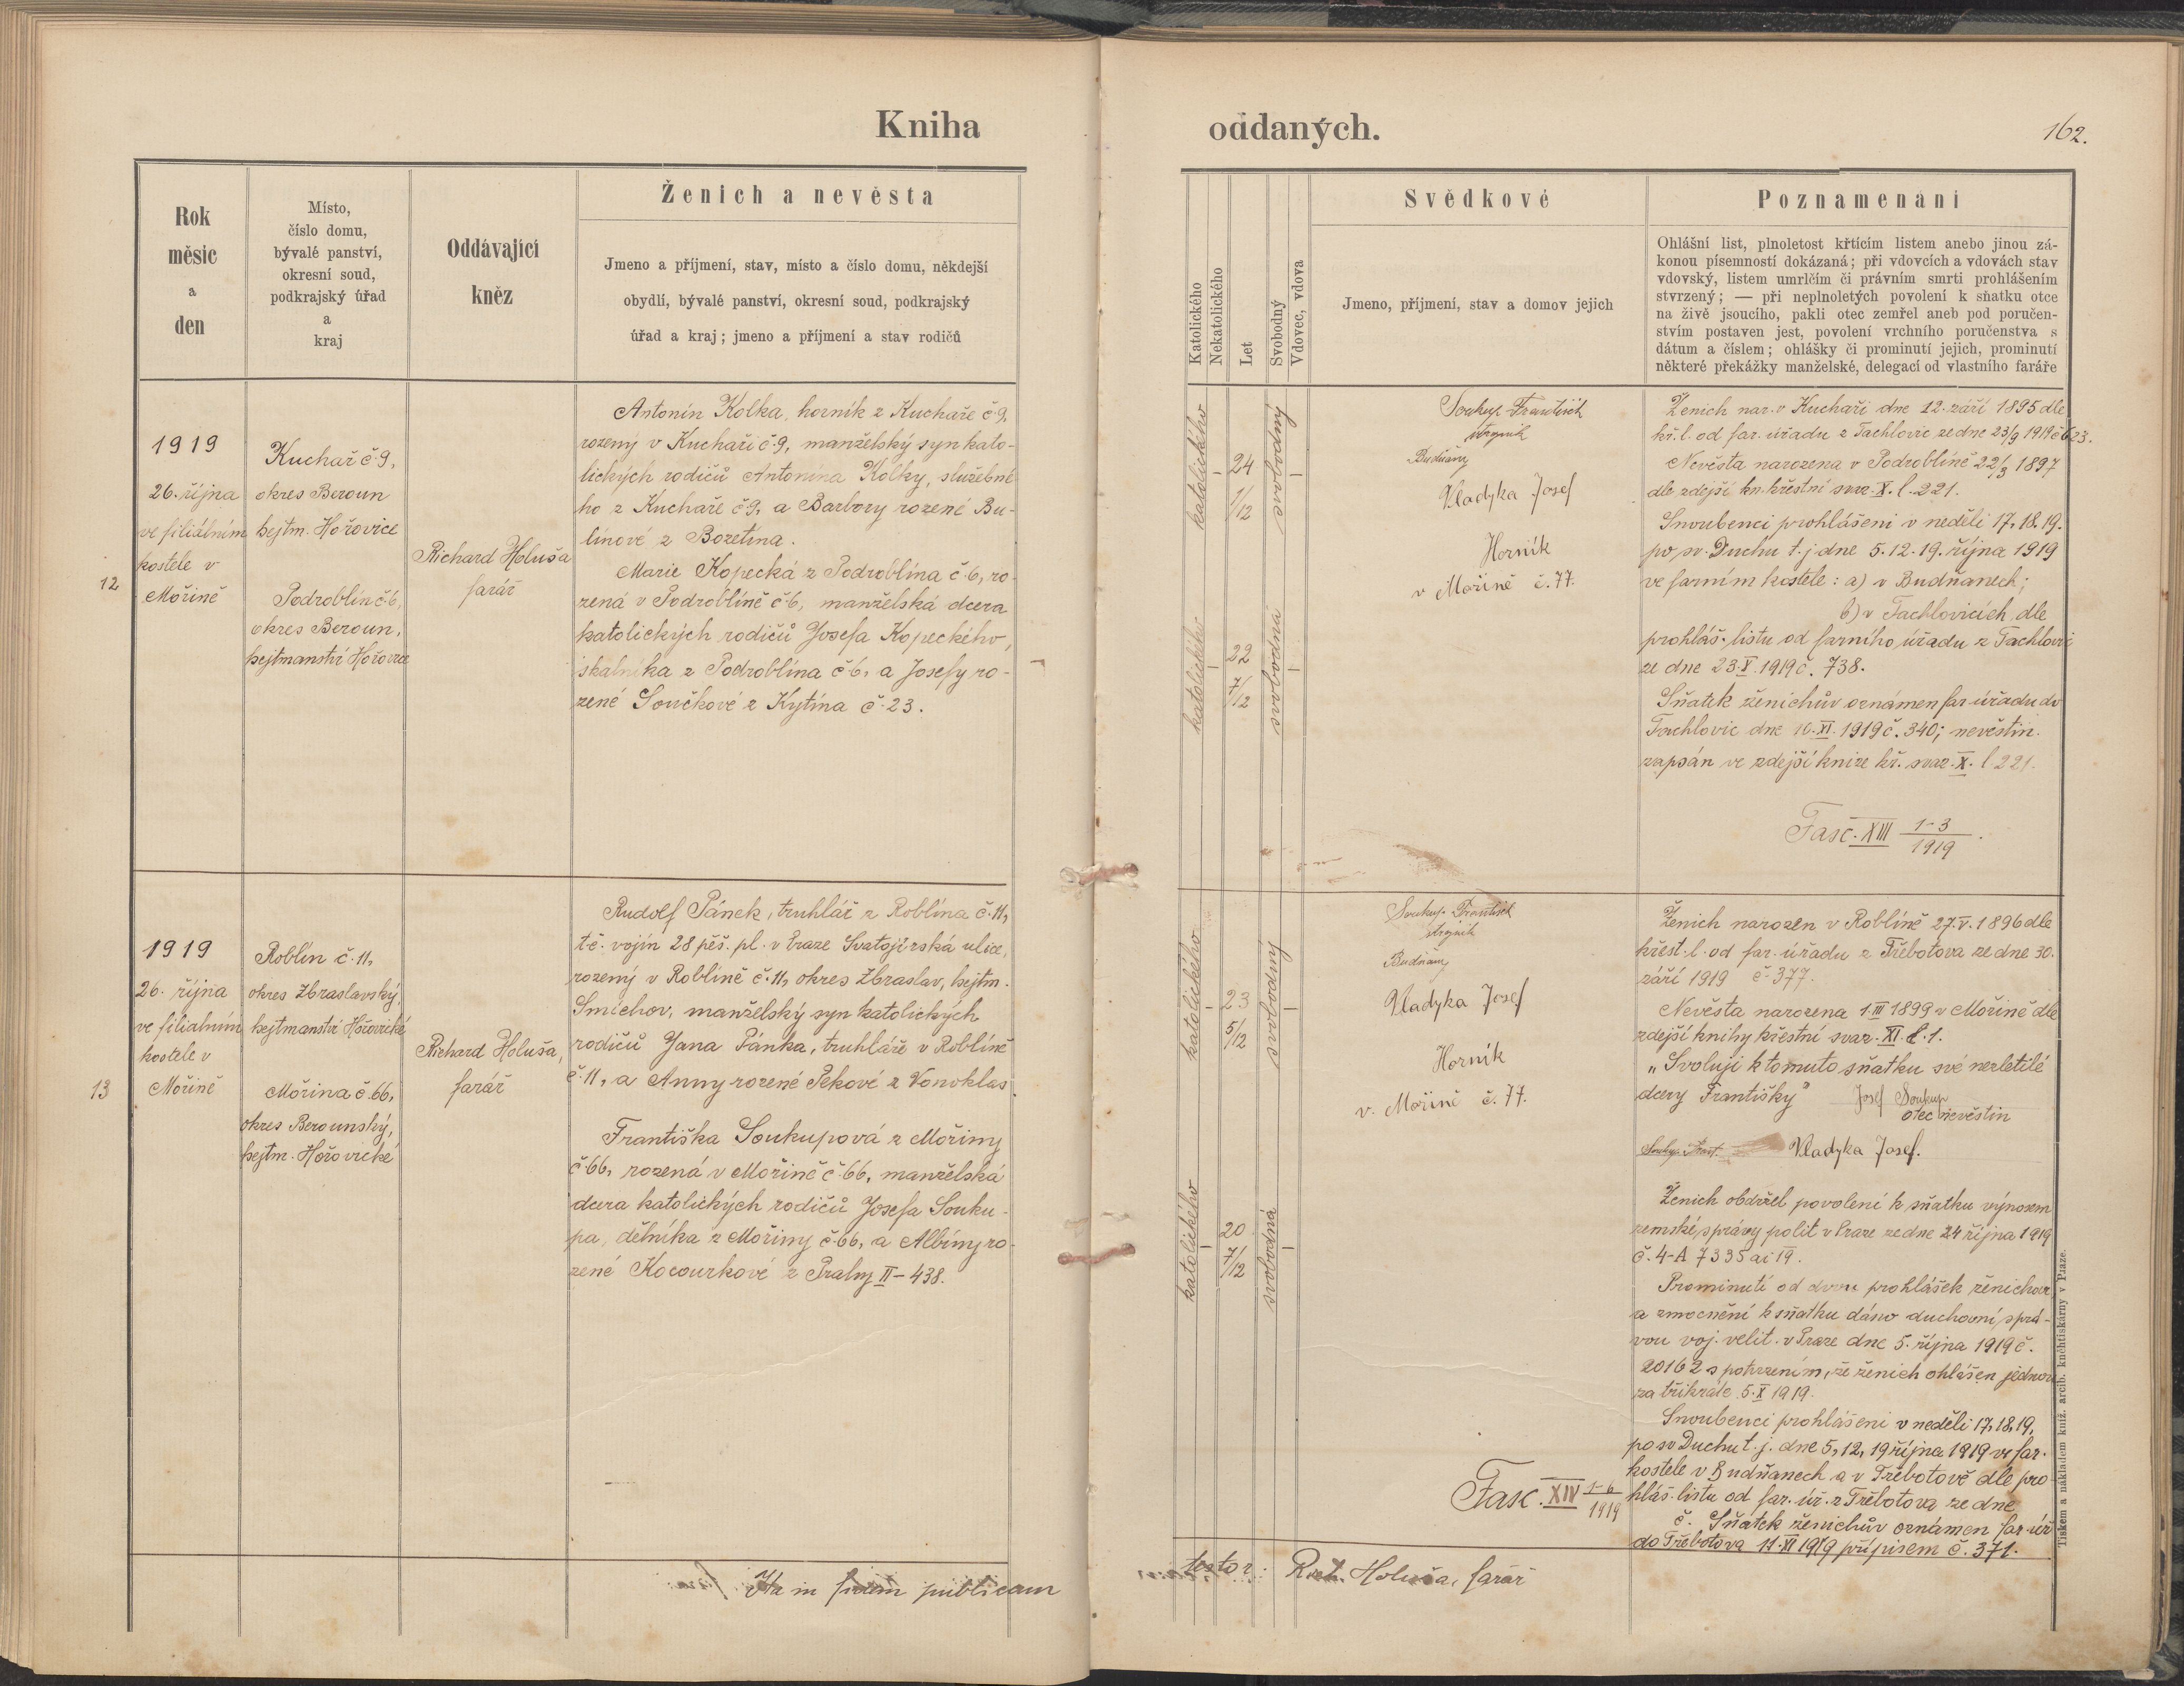 Kniha
oddaných.
162.
Rok
měsíc
a
den
Místo,
číslo domu,
bývalé panství,
okresní soud,
podkrajský úřad
a
kraj
Oddávající
kněz
Ženich a nevěsta
Jmeno a příjmení, stav, místo a číslo domu, někdejší
obydlí, bývalé panství, okresní soud, podkrajský
úřad a kraj; jmeno a příjmení a stav rodičů
Katolického
Nekatolického
Let
Svobodný
Vdovec, vdova
Svědkové
Jmeno, příjmení, stav a domov jejich
Poznamenání
Ohlášní list, plnoletost křtícím listem anebo jinou zá-
konou písemností dokázaná; při vdovcích a vdovách stav
vdovský, listem umrlčím či právním smrti prohlášením
stvrzený; — při neplnoletých povolení k sňatku otce
na živě jsoucího, pakli otec zemřel aneb pod poručen-
stvím postaven jest, povolení vrchního poručenstva s
dátum a číslem; ohlášky či prominutí jejich, prominutí
některé překážky manželské, delegací od vlastního faráře
12
1919
26. října
ve filiálním
kostele v
Mořině
Kuchař č. 9,
okres Beroun
hejtm. Hořovice
Podroblín č. 6,
okres Beroun,
hejtmanství Hořovice
Richard Holuša
farář
Antonín Kolka, horník z Kuchaře č. 9,
rozený v Kuchaři č. 9, manželský syn kato-
lických rodičů Antonína Kolky, služebné-
ho z Kuchaře č. 9, a Barbory rozené Bu-
línové z Bozetína.
Marie Kopecká z Podroblína č. 6, ro-
zená v Podroblíně č. 6, manželská dcera
katolických rodičů Josefa Kopeckého,
skalníka z Podroblína č. 6, a Josefy ro-
zené Součkové z Kytína č. 23.
katolického
–
24
1/12
svobodný
–
katolického
–
22
7/12
svobodná
–
Soukup František
strojník
Budňany
Vladyka Josef
Horník
v Mořině č. 77.
Ženich nar. v Kuchaři dne 12. září 1895 dle
kř. l. od far. úřadu z Tachlovic ze dne 23/9 1919 č. 623.
Nevěsta narozena v Podroblíně 22/3 1897
dle zdejší kn. křestní svaz. X. l. 221.
Snoubenci prohlášeni v neděli 17, 18. 19.
po sv. Duchu t. j. dne 5. 12. 19. října 1919
ve farním kostele: a) v Budňanech;
b) v Tachlovicích, dle
prohláš. listu od farního úřadu z Tachlovic
ze dne 23. X. 1919 č. 738.
Sňatek ženichův oznámen far. úřadu do
Tachlovic dne 10. XI. 1919 č. 340; nevěstin
zapsán ve zdejší knize kř. svaz. X. l. 221.
Fasc. XIII 1-3/1919.
13
1919
26. října
ve filialním
kostele v
Mořině
Roblín č. 11,
okres Zbraslavský,
hejtmanství Hořovické
Mořina č. 66,
okres Berounský,
hejtm. Hořovické
Richard Holuša,
farář
Rudolf Pánek, truhlář z Roblína č. 11,
t. č. vojín 28 pěš. pl. v Praze Svatojirská ulice,
rozený v Roblíně č. 11, okres Zbraslav, hejtm.
Smíchov, manželský syn katolických
rodičů Jana Pánka, truhláře v Roblíně
č. 11, a Anny rozené Pekové z Vonoklas
Františka Soukupová z Mořiny
č. 66, rozená v Mořině č. 66, manželská
dcera katolických rodičů Josefa Souku-
pa, dělníka z Mořiny č. 66, a Albíny ro-
zené Kocourkové z Prahy II – 438.
katolického
–
23
5/12
svobodný
–
katolického
–
20
7/12
svobodná
–
Soukup František
strojník
Budňany
Vladyka Josef
Horník
v. Mořině č. 77.
Fasc. XIV 1-6/1919
Ženich narozen v Roblíně 27. V. 1896 dle
křest. l. od far. úřadu z Třebotova ze dne 30.
září 1919 č. 377.
Nevěsta narozena 1. III 1899 v Mořině dle
zdejší knihy křestní svaz. XI. l. 1.
„Svoluji k tomuto sňatku své nezletilé
dcery Františky" Josef Soukup
otec nevěstin
Soukup Frant. Vladyka Josef.
Ženich obdržel povolení k sňatku výnosem
zemské správy polit v Praze ze dne 24 října 1919
č. 4-A 7335 ai 19.
Prominutí od dvou prohlášek ženichov.
a zmocnění k sňatku dáno duchovní sprá-
vou voj. velit. v Praze dne 5. října 1919 č.
20162 s potvrzením, že ženich ohlášen jednou
za třikráte 5. X 1919.
Snoubenci prohlášeni v neděli 17, 18, 19,
po sv Duchu t. j. dne 5, 12, 19 října 1919 ve far.
kostele v Budňanech a v Třebotově dle pro-
hláš. listu od far. úř. z Třebotova ze dne
č. Sňatek ženichův oznámen far. úř
do Třebotova 11. XI 1919 přípisem č. 371.
Ita in fidem publicam
testor: Rich. Holuša, farář
Tiskem a nákladem kníž. arcib. knihtiskárny v Praze.